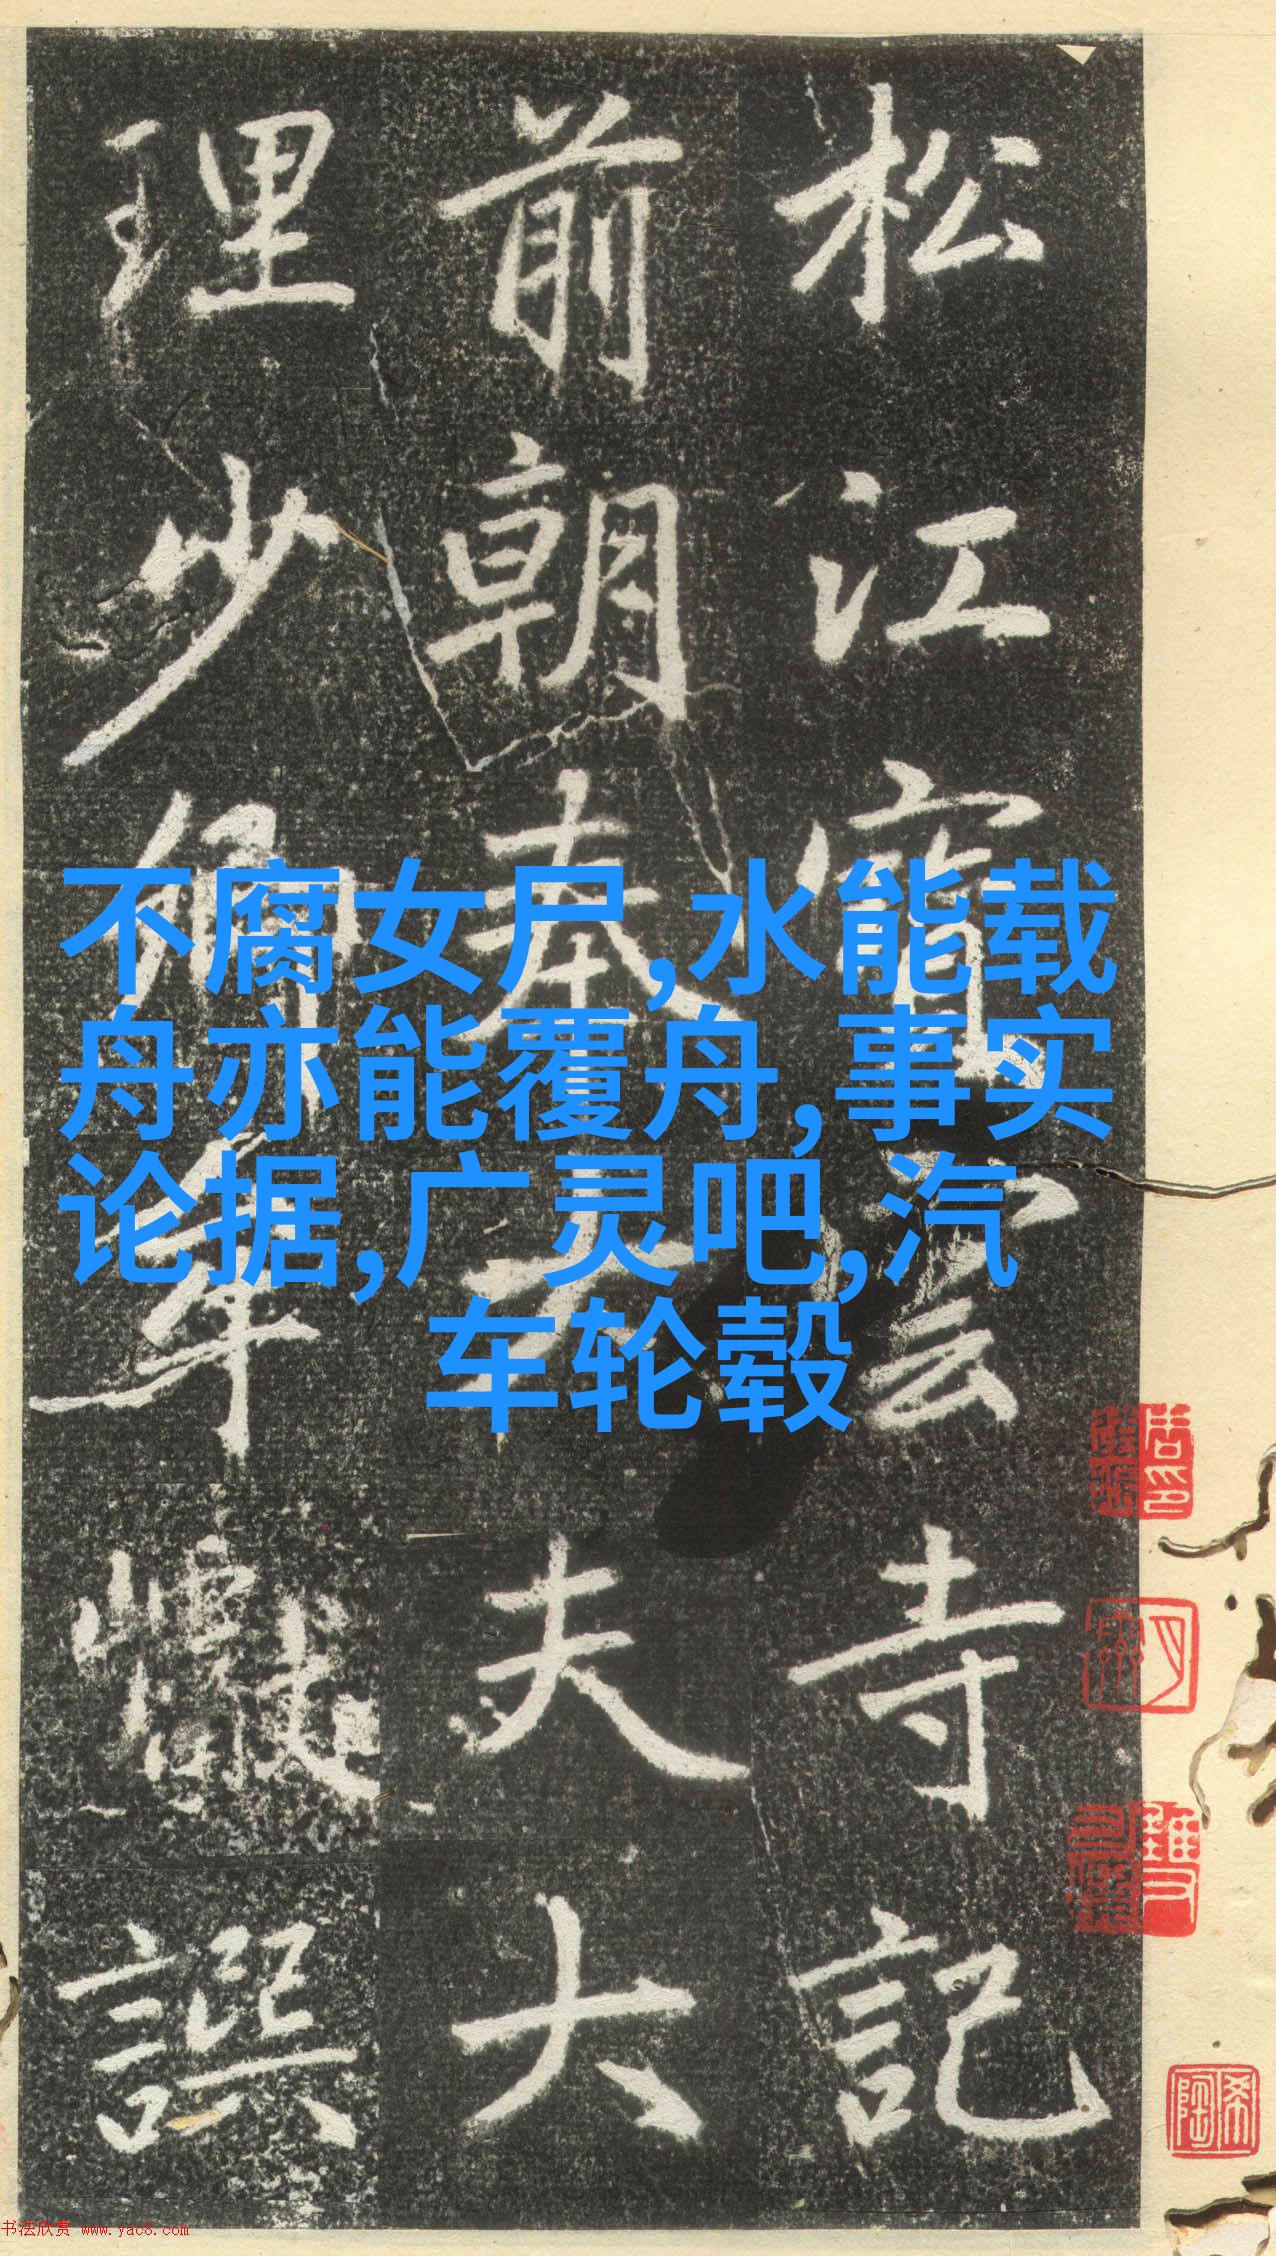 松江寳雲寺記
前朝奉大夫大
理少卿牟巘譔
不腐女尸,水能载
舟亦能覆舟,事实
论据,广灵吧,汽
车轮毂
希陶
书法欣赏 www.yac8.com